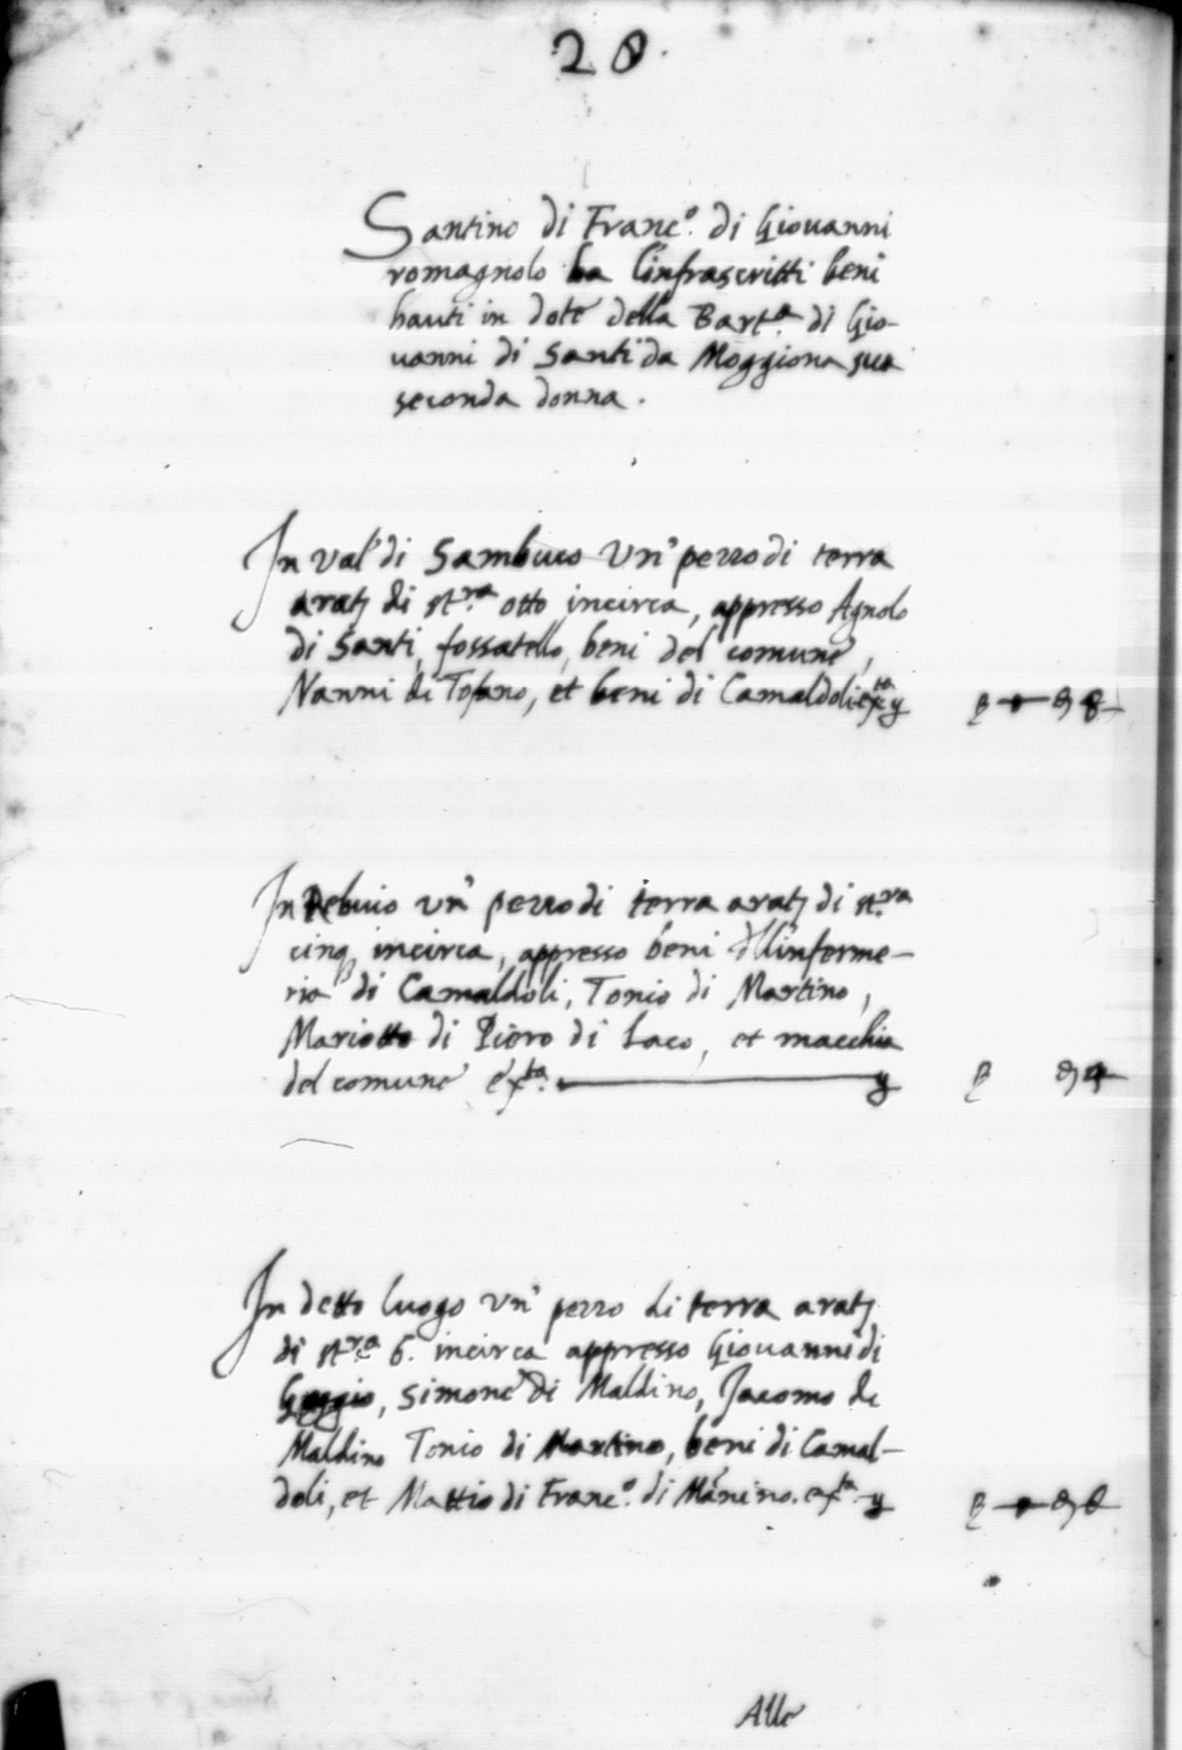 28.
Santino di Franc.º di Giouanni
romagnolo ha l'infrascritti beni
hauti in dote della Bart.ª di Gio-
uanni di Santi da Moggiona sua
seconda donna.
In val di Sambuco un' pezzo di terra
arat. di st.ra otto incirca, appresso Agnolo
di Santi, fossatello, beni del comune,
Nanni di Tofano, et beni di Camaldoli
In un' pezzo di terra arat. di st.ra
cinq incirca, appresso beni dll'inferme-
ria di Camaldoli, Tonio di Martino,
Mariotto di Piero di Laco, et macchia
del comune
In detto luogo un' pezzo di terra arat.
di st.ra 6. incirca appresso Giouanni di
Goggio, Simone di Maldino, Jacomo di
Maldino Tonio di Martino, beni di Camal-
doli, et Mattio di Franc.º di
Alle